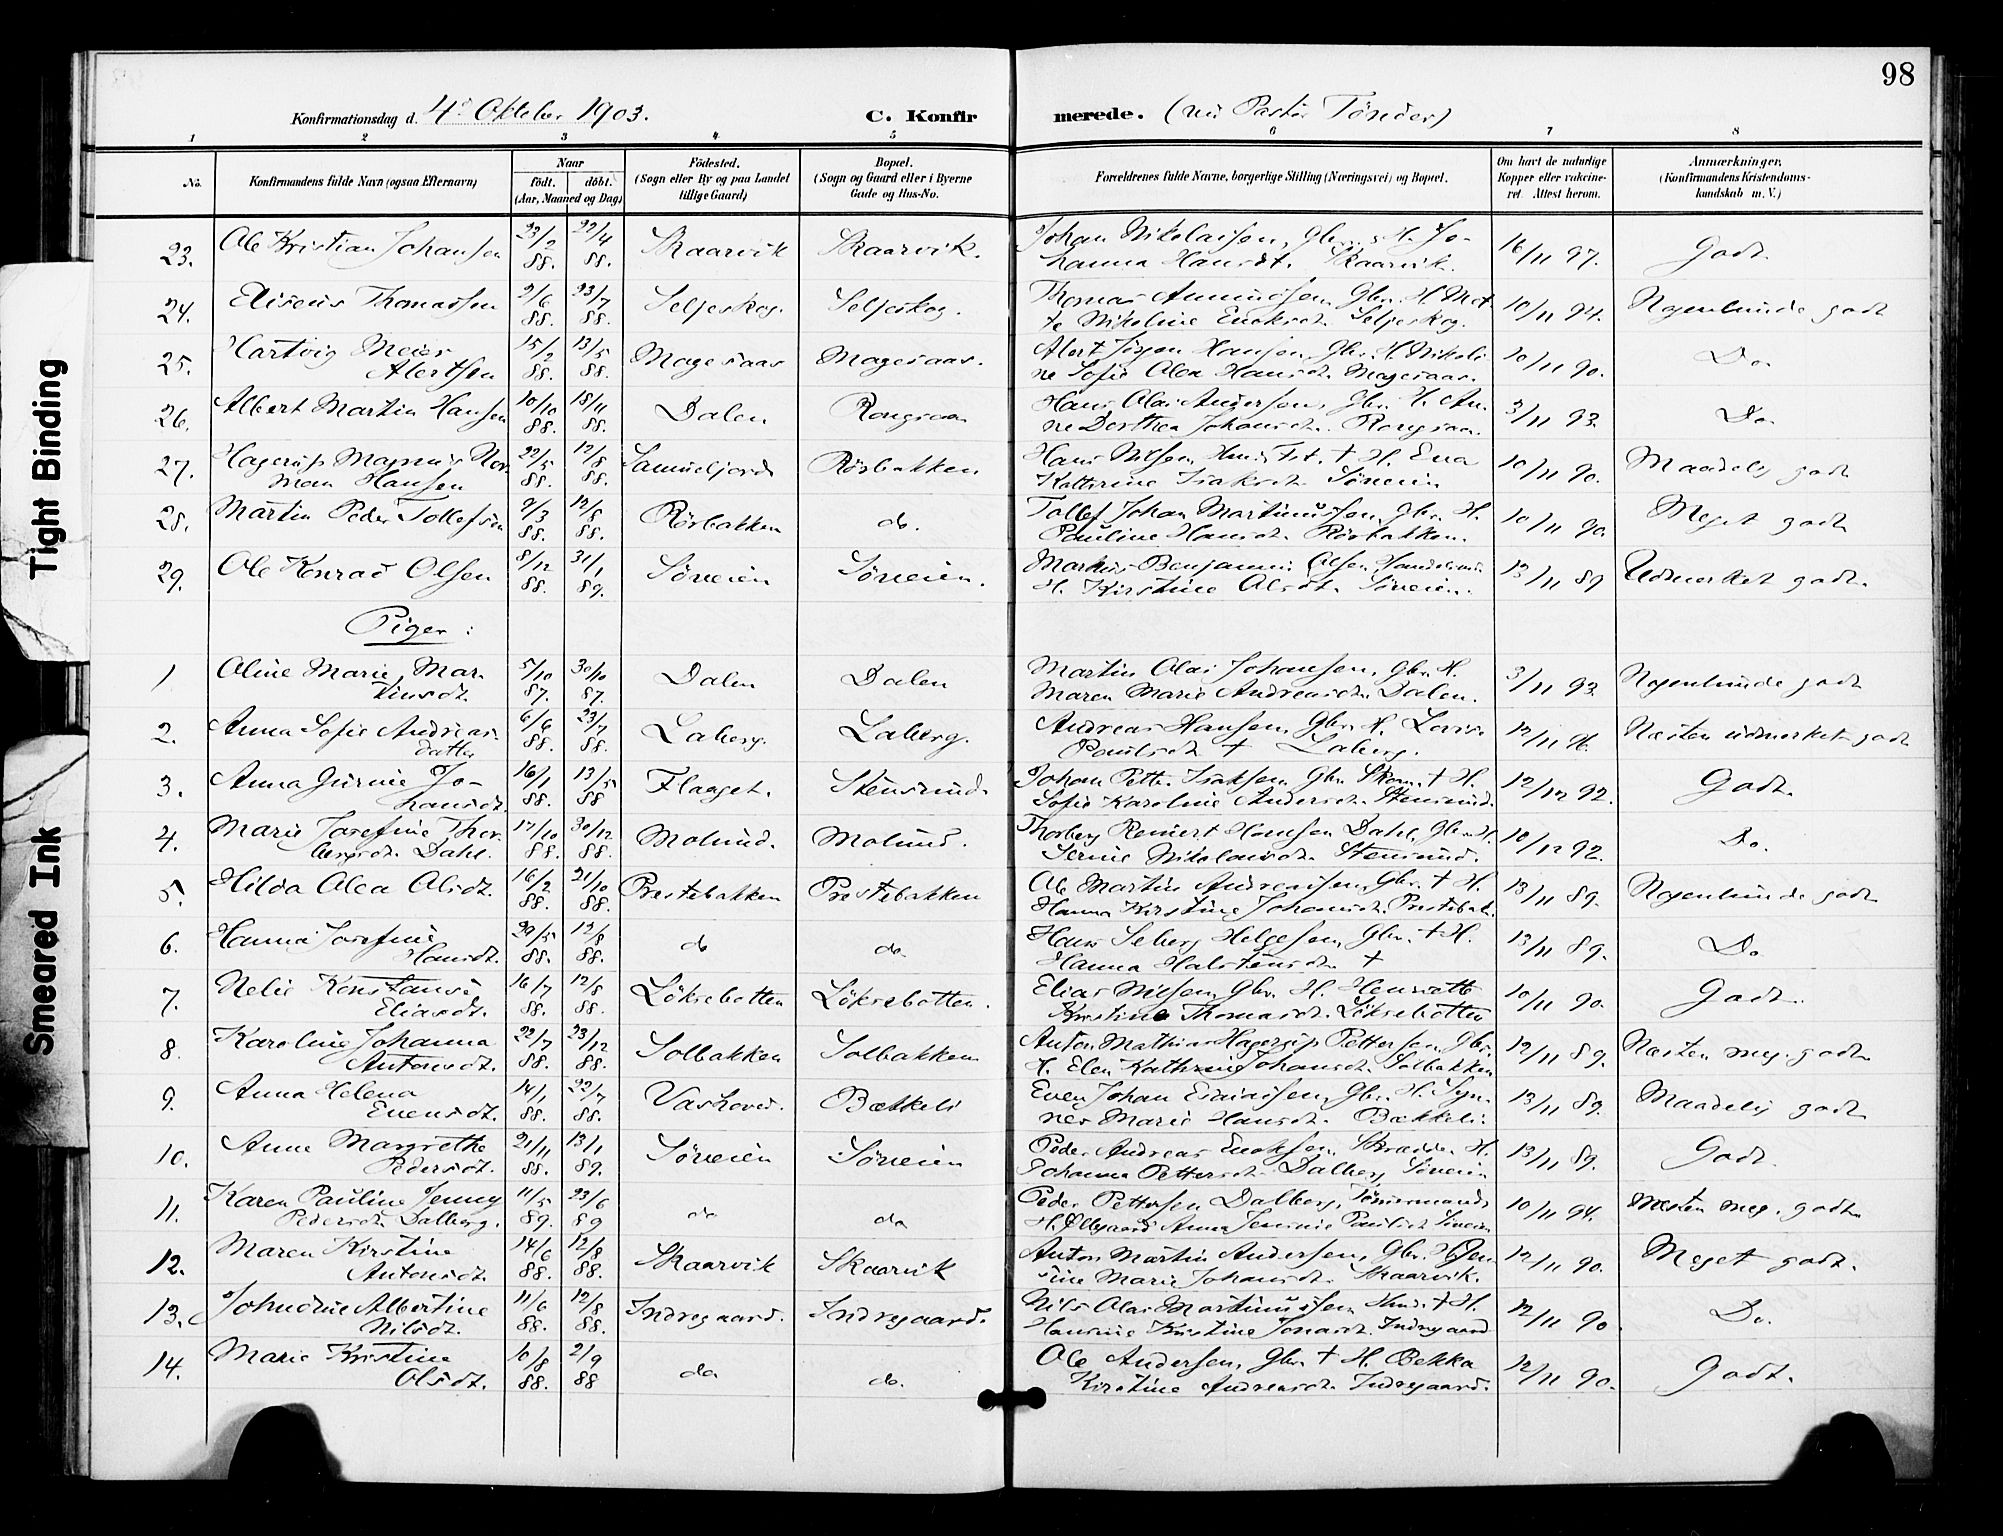 98
Konfirmationsdag d. 4de Oktober 1903. C. Konfir merede. (ved Pastor Tönder)
1 2 3 4 5 6 7 8
No. Konfirmandens fulde Navn (ogsaa Efternavn) Naar Födested. Bopæl. Forældrenes fulde Navne, borgerlige Stilling (Næringsvei) og Bopæl. Om havt de naturlige Anmærkninger.
födt. döbt. (Sogn eller By og paa Landet (Sogn og Gaard eller i Byerne Kopper eller vakcine- (Konfirmandens Kristendoms-
(Aar, Maaned og Dag) tillige Gaard) Gade og Hus-No. ret. Attest herom. kundskab m. V.)
23. Ole Kristian Johansen 23/2 22/4 Skaarvik Skaarvik. Johan Nikolaisen, Gbr. & H. Jo- 16/11 97. Godt.
88. 88. hanna Hansdt. Skaarvik.
24. Eliseus Thomassen 2/6 23/7 Seljeskog. Seljeskog. Thomas Amundsen, Gbr. H. Met- 10/11 94. Nogenlunde godt
88. 88. te Nikoline Enoksdt. Seljeskog.
25. Hartvig Meier 15/2 13/5 Magesaas Magesaas. Alert Jörgen Hansen, Gbr. H. Nikoli 10/11 90. Do.
Alertsen 88. 88. ne Sofie Alea Hansdt. Magesaas.
26. Albert Martin Hansen 10/10 18/11 Dalen Hans Olai Andersen, Gbr. H. An- 3/11 93. Do.
88. 88. ne Dorthea Johansdt.
27. Hagerup Magnus Nor 22/5 12/8 Samueljord Rösbakken Hans Nilsen H. Eva 10/11 90. Maadelig godt
man Hansen 88. 88. Katterine Isaksdt. Sörveien
28. Martin Peder Tollefsen 2/3 12/8 Rösbakken do. Tollef Johan Martinussen, Gbr. H. 10/11 90. Meget godt
88. 88. Pauline Hansdt. Rösbakken.
29. Ole Konrad Olsen 8/12 31/1 Sörveien Sörveien. Markus Benjamin Olsen, Handelsm. 13/11 89 Udmerket godt.
88. 89. H. Kirstine Olsdt. Sörveien.
Piger:
1 Oline Marie Mar- 5/10 30/10 Dalen Dalen Martin Olai Johansen, Gbr. H. 3/11 93. Nogenlunde godt
tinsdt. 87. 87. Maren Marie Andreasdt. Dalen.
2. Anna Sofie Andreas- 6/6 23/7 Laberg. Laberg. Andreas Hansen, Gbr. H. Lovise 12/11 96. Næsten udmerket godt
datter 88. 88. Paulsdt. † Laberg.
3. Anna Gurine Jo- 16/1 13/5 Flaaget. Stensund. Johan Petter Isaksen, Gbr. Skom. † H. 12/12 92. Godt.
hansdt. 88. 88 Sofie Karoline Andersdt. Stensund.
4. Marie Josefine Thor 17/10 30/12 Molund. Molund. Thorberg Reinert Hansen Dahl, Gbr. H. 10/12 92. Do.
bergsdt. Dahl. 88. 88. Serine Nikolaisdt. Stensund.
5. Hilda Alea Olsdt. 16/2 21/10 Prestebakken Prestebakken Ole Martin Andreassen, Gbr. † H. 13/11 89. Nogenlunde godt
88. 88. Hanna Kirstine Johansdt. Prestebak.
6. Hanna Josefine 29/5 12/8 do do Hans Seberg Helgesen, Gbr. † H. 13/11 89. Do
Hansdt. 88. 88. Hanna Halstensdt. †
7. Nelie Konstanse 16/7 12/8 Löksebotten Löksebotten. Elias Nilsen, Gbr. H. Henriette 10/11 90. Godt.
Eliasdt. 88. 88. Kirstine Thomasdt. Löksebotten
8. Karoline Johanna 22/7 23/12 Solbakken Solbakken Anton Mathias Hagerup Pettersen, Gbr. 12/11 89. Næsten meg. godt
Antonsdt. 88. 88. H. Elen Kathrine Johansdt. Solbakken
9. Anna Helena 14/1 22/7 Vashoved. Bækkeli Even Johan Esaiassen, Gbr. H. Syn- 13/11 89. Maadelig godt
Evensdt. 88. 88. nev Marie Hansdt. Bækkeli.
10. Anne Margrethe 21/11 13/1 Sörveien Sörveien Peder Andreas Enoksen, Skrædder H. 13/11 89. Godt.
Pedersdt. 88. 89. Johanna Pettersdt. Dalberg Sörveien
11. Karen Pauline Jenny 11/5 23/6 do do Peder Pettersen Dalberg, Tömmermand 10/11 94. næsten meg. godt
Pedersdt. Dalberg. 89. 89 H. Ellegaard Anna Jennine Paulsdt. Sörveien
12. Maren Kirstine 14/6 12/8 Skaarvik Skaarvik Anton Martin Andersen, Gbr. H. Jen 12/11 90. Meget godt.
Antonsdt. 88. 88. sine Marie Johansdt. Skaarvik.
13. Johndine Albertine 11/6 12/8 Indregaard. Indregaard. Nils Olai Martinussen Hmd. † H. 12/11 90. Do.
Nilsdt. 88. 88. Hansine Kirstine Jonasdt. Indregaard
14. Marie Kristine 10/8 2/9 do do. Ole Andersen, Gbr. † H. Bekka 12/11 90. Godt.
Olsdt. 88. 88 Kirstine Andreasdt. Indregaard.
Tight Binding
Smeared Ink